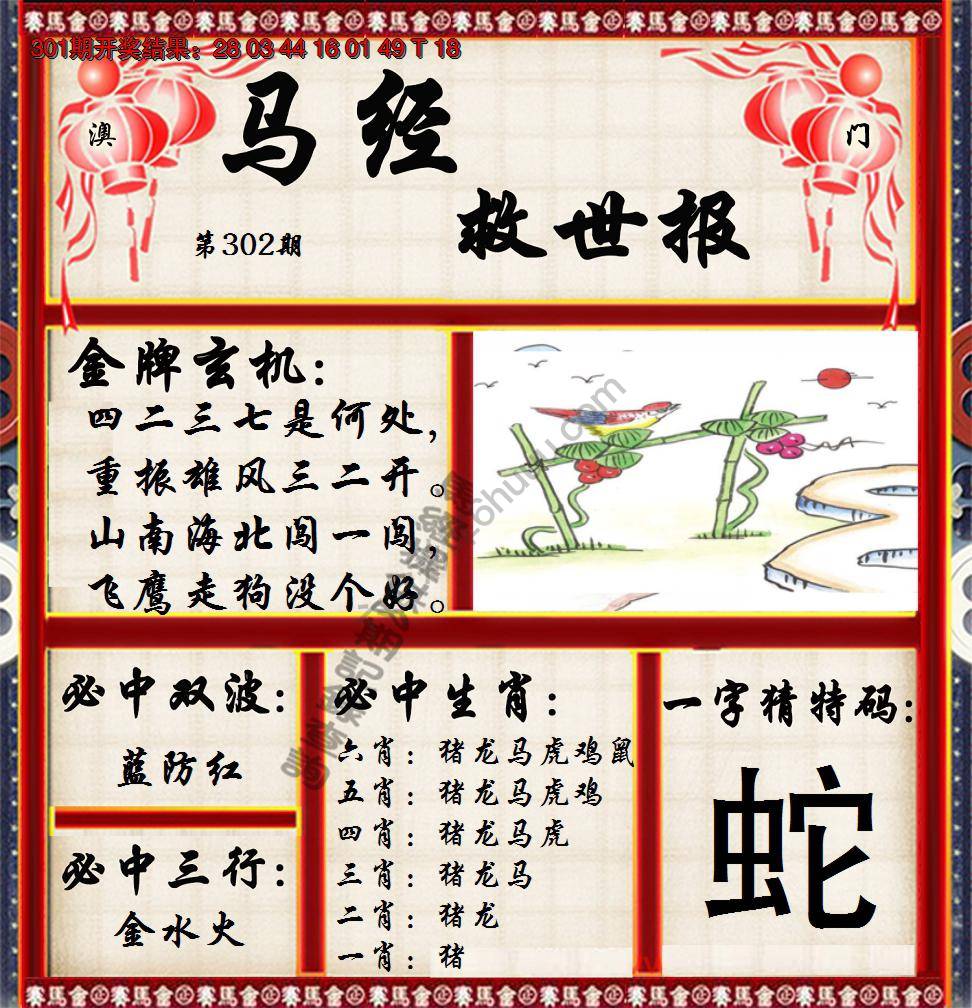 301期开奖结果：28 03 44 16 01 49 T 18
澳
门
马经
救世报
第302期
金牌玄机：
四二三七是何处，
重振雄风三二开。
山南海北闯一闯，
飞鹰走狗没个好。
必中双波：
蓝防红
必中三行：
金水火
必中生肖：
六肖：猪龙马虎鸡鼠
五肖：猪龙马虎鸡
四肖：猪龙马虎
三肖：猪龙马
二肖：猪龙
一肖：猪
一字猜特码：
蛇